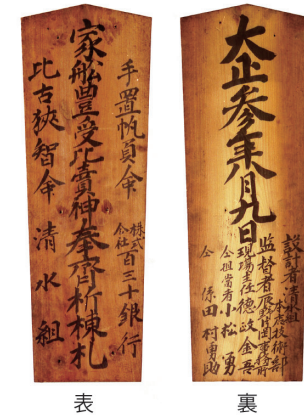 手置帆負命 株式会社百三十銀行
家舩豊受比賣神奉齊祈棟札
比古狭智命 清水組
表
大正参年八月九日
設計者清水組本店技術部
監督者辰野片岡事務所
現場主任徳政金吾
仝担当者小松勇
仝係田村勇助
裏